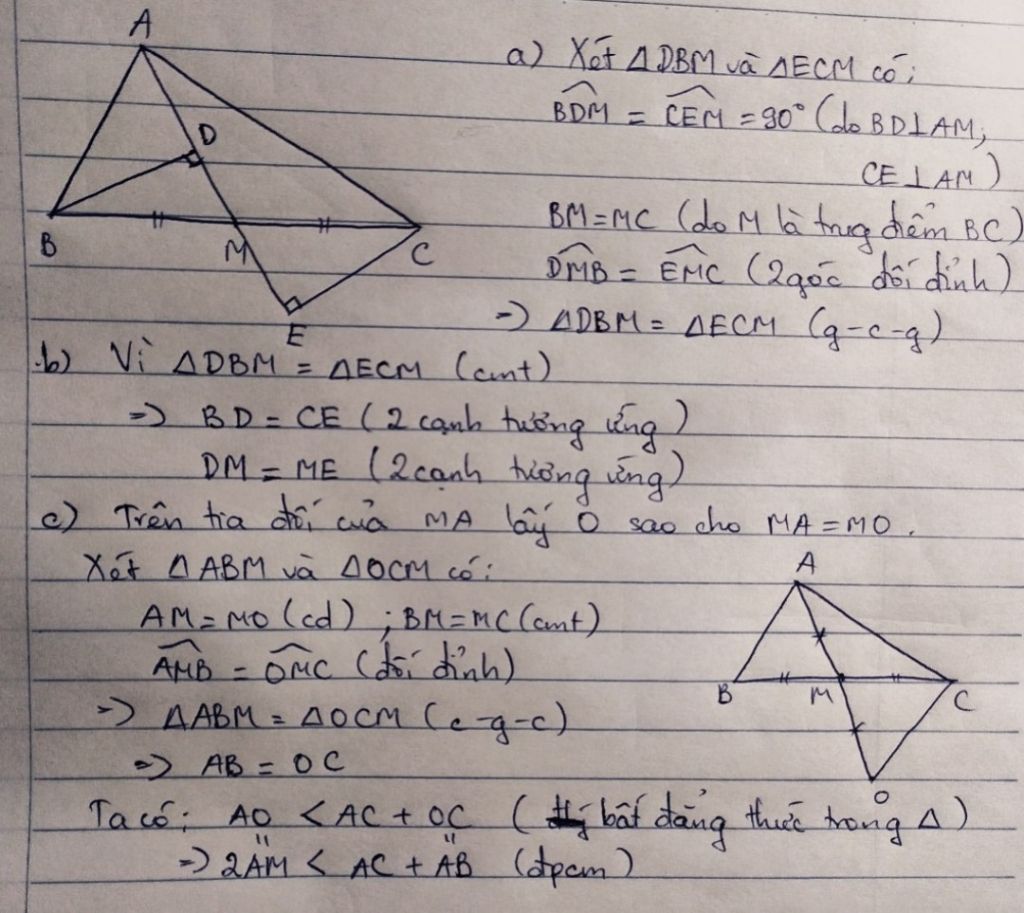 A
D
B
M
C
E
a) Xét ΔDBM và ΔECM có:
BDM = CEM = 90° (do BD⊥AM,
CE⊥AM)
BM=MC (do M là trung điểm BC)
DMB = EMC (2 góc đối đỉnh)
=> ΔDBM = ΔECM (g-c-g)
b) Vì ΔDBM = ΔECM (cmt)
=> BD = CE (2 cạnh tương ứng)
DM = ME (2 cạnh tương ứng)
c) Trên tia đối của MA lấy O sao cho MA=MO.
Xét ΔABM và ΔOCM có:
AM=MO (cd) ; BM=MC (cmt)
AMB = OMC (đối đỉnh)
=> ΔABM = ΔOCM (c-g-c)
=> AB = OC
A
B
M
C
O
Ta có: AO < AC + OC ( bất đẳng thức trong Δ)
=> 2AM < AC + AB (đpcm)